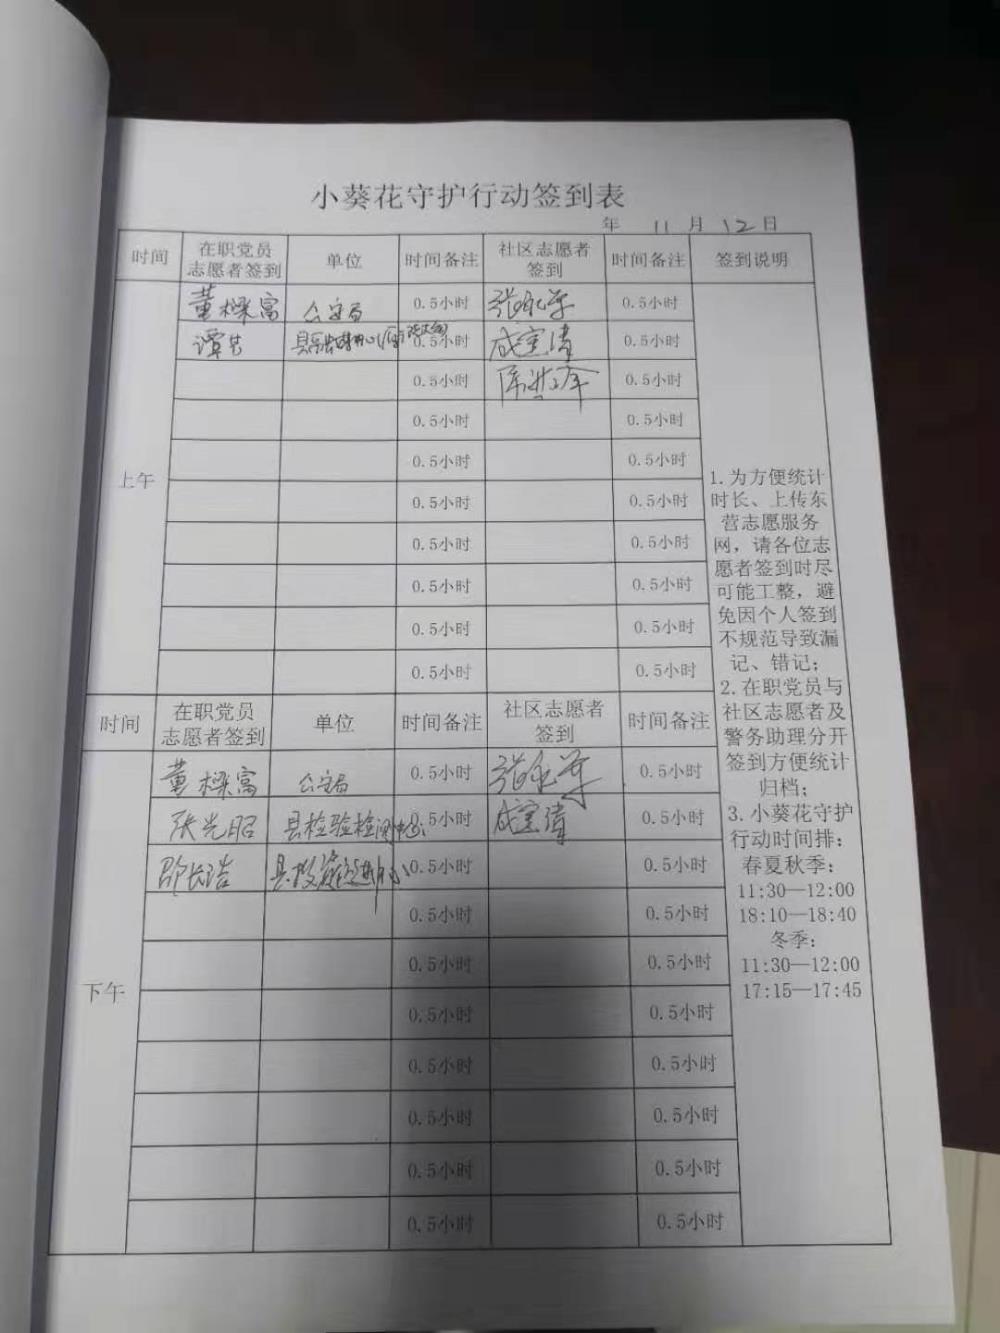 小葵花守护行动签到表
年 11 月 12 日
时间 在职党员志愿者签到 单位 时间备注 社区志愿者签到 时间备注 签到说明
上午
董樑富 公安局 0.5小时 0.5小时
谭 0.5小时 成宝清 0.5小时
0.5小时 0.5小时
0.5小时 0.5小时
0.5小时 0.5小时
0.5小时 0.5小时
0.5小时 0.5小时
0.5小时 0.5小时
0.5小时 0.5小时
0.5小时 0.5小时
时间 在职党员志愿者签到 单位 时间备注 社区志愿者签到 时间备注
下午
董樑富 公安局 0.5小时 0.5小时
张光昭 县检验检测中心 0.5小时 成宝清 0.5小时
邵长浩 县投资促进中心 0.5小时 0.5小时
0.5小时 0.5小时
0.5小时 0.5小时
0.5小时 0.5小时
0.5小时 0.5小时
0.5小时 0.5小时
0.5小时 0.5小时
0.5小时 0.5小时
1.为方便统计
时长、上传东
营志愿服务
网，请各位志
愿者签到时尽
可能工整，避
免因个人签到
不规范导致漏
记、错记；
2.在职党员与
社区志愿者及
警务助理分开
签到方便统计
归档；
3.小葵花守护
行动时间排：
春夏秋季：
11:30—12:00
18:10—18:40
冬季：
11:30—12:00
17:15—17:45